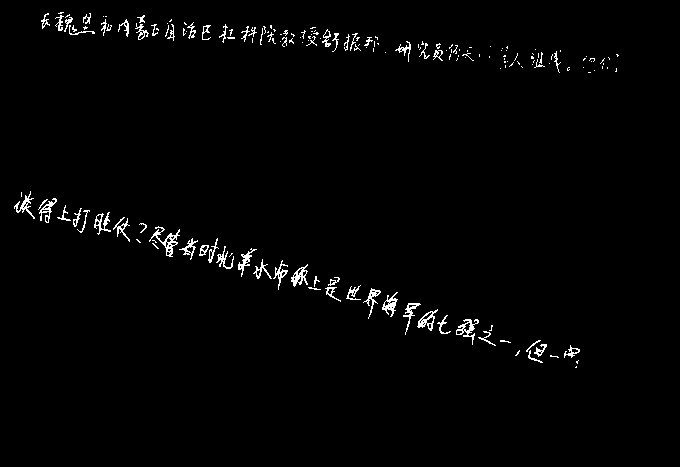 长魏坚和内蒙古自治区社科院教授舒振邦、研究员人组成。
谈得上打胜仗?尽管当时北洋水师称上是世界海军的七强之一,但一